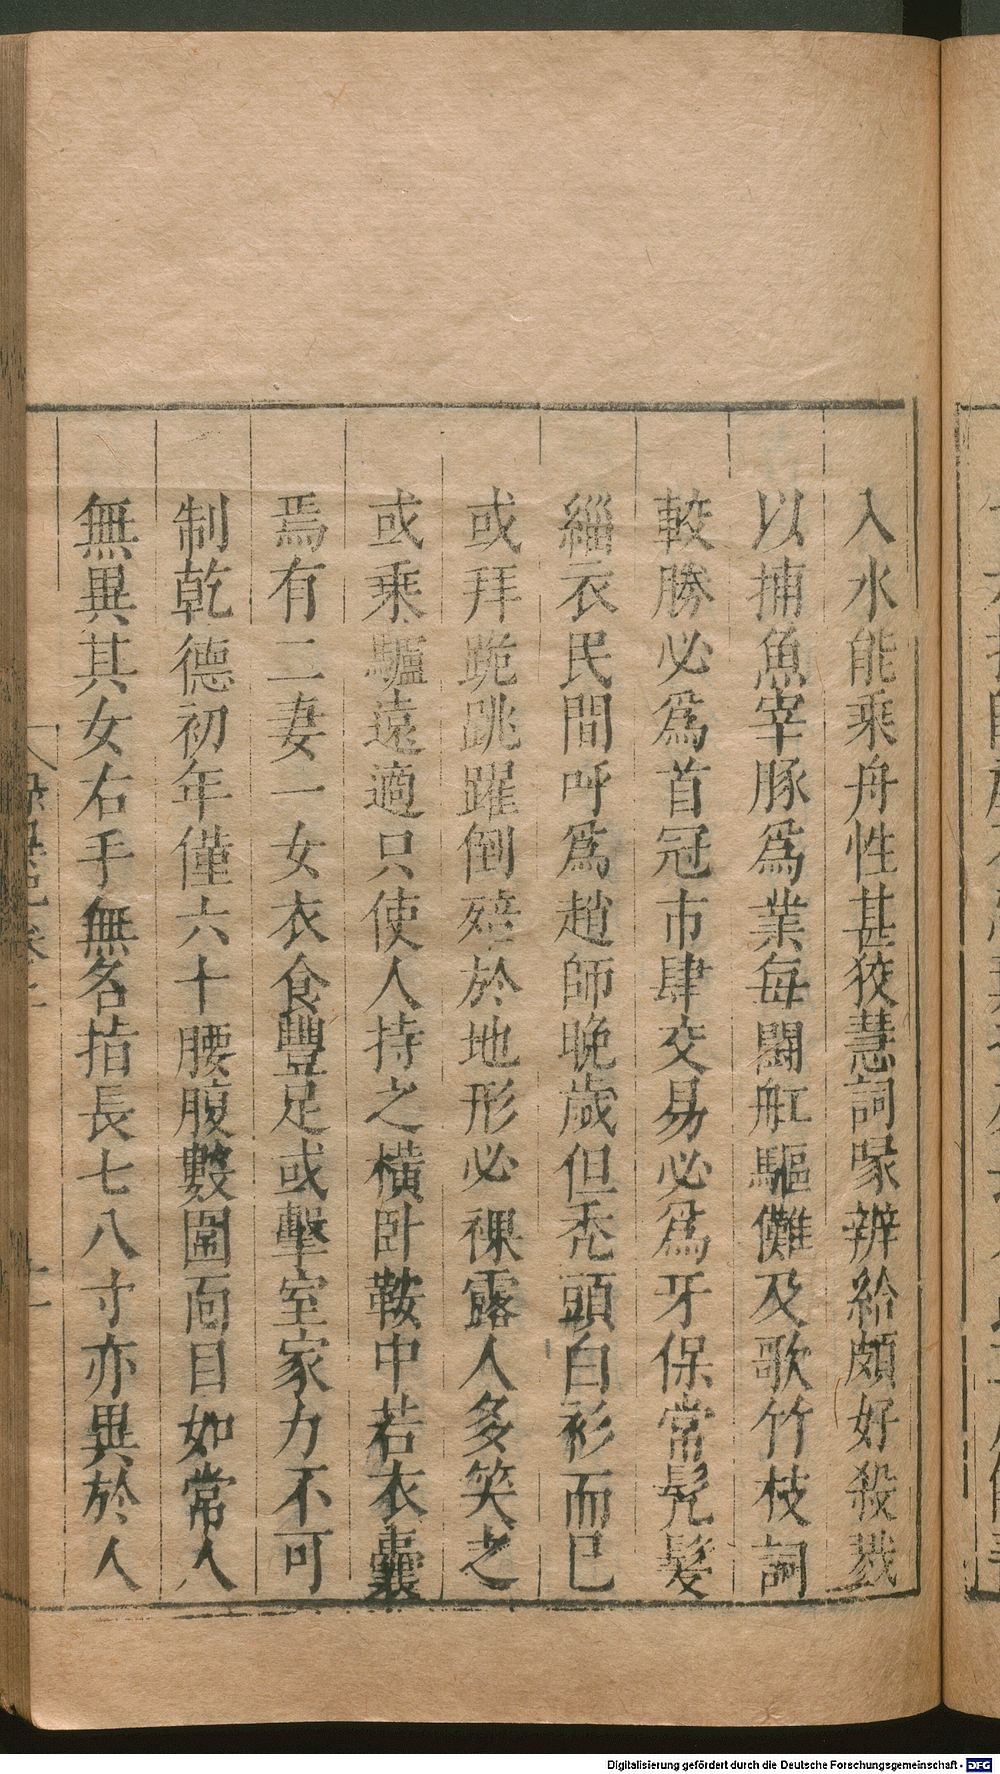 入水能乘舟性甚狡慧詞喙辨給頗好殺戮
以捕魚宰豚爲業每鬪舡驅儺及歌竹枝詞
較勝必爲首冠市肆交易必爲牙保常髡髮
緇衣民間呼爲趙師晚歲但禿頭白衫而已
或拜跪跳躍倒殕於地形必裸露人多笑之
或乘驢遠適只使人持之橫臥鞍中若衣囊
焉有二妻一女衣食豐足或擊室家力不可
制乾德初年僅六十腰腹數圍面目如常人
無異其女右手無名指長七八寸亦異於人
Digitalisierung gefördert durch die Deutsche Forschungsgemeinschaft - DFG